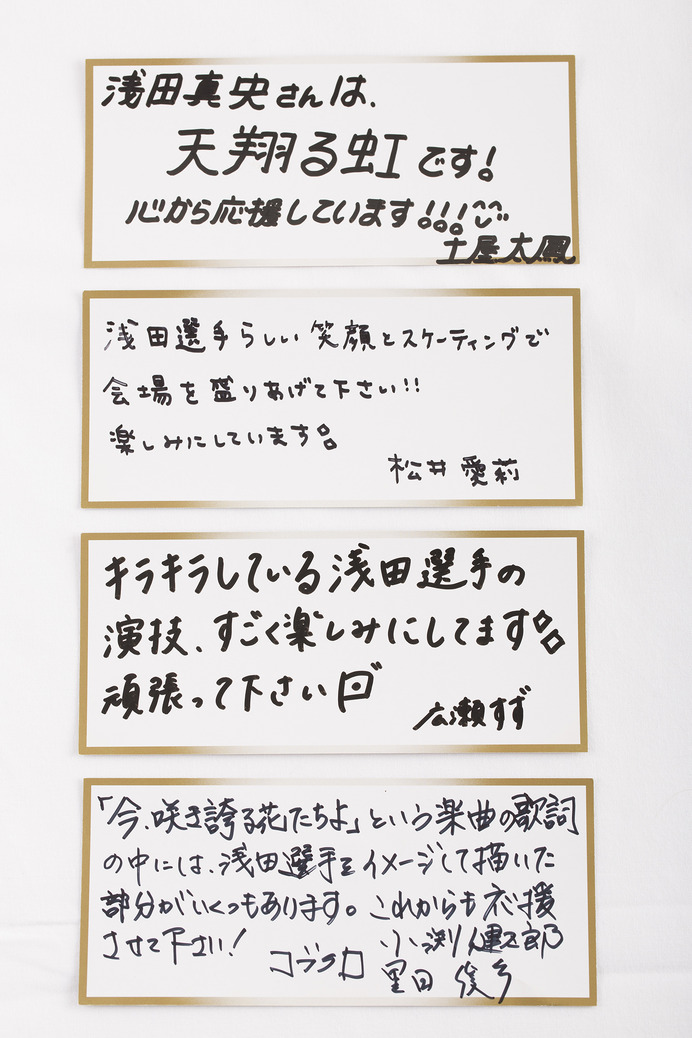 浅田真央さんは、
天翔る虹です!
心から応援しています!!!
土屋太鳳
浅田選手らしい笑顔とスケーティングで
会場を盛りあげて下さい!!
楽しみにしています。
松井愛莉
キラキラしている浅田選手の
演技、すごく楽しみにしてます。
頑張って下さい
広瀬すず
「今、咲き誇る花たちよ」という楽曲の歌詞
の中には、浅田選手をイメージして描いた
部分がいくつもあります。これからも応援
させて下さい!
コブクロ
小渕健太郎
黒田俊介